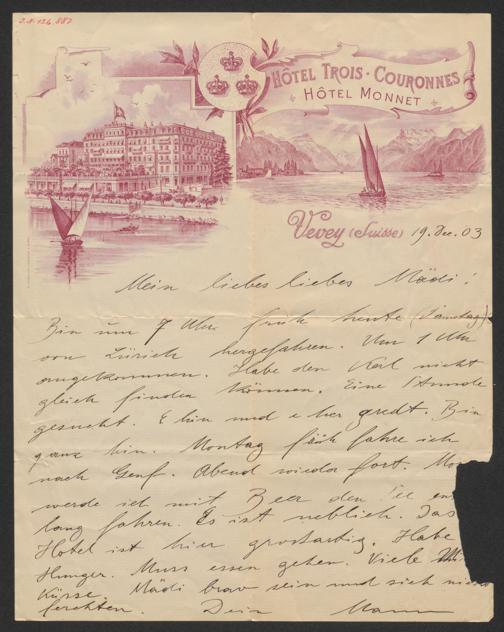 J.N. 124.887
HÔTEL TROIS-COURONNES
HÔTEL MONNET
Vevey (Suisse) 19. Dec. 03
Mein liebes liebes Mädi!
Bin um 7 Uhr früh heute (Samstag)
von Zürich hergefahren. Um 1 Uhr
angekommen. Habe den Karl nicht
gleich finden können. Eine Stunde
gesucht. hin und her gredt. Bin
ganz hin. Montag früh fahre ich
nach Genf. Abend wieder fort.
werde ich mit Beer den
lang fahren. Es ist neblich. Das
Hotel ist hier grossartig. Habe
Hunger. Muss essen gehen. Viele
Küsse. Mädi brav sein und sich
ferchten. Dein Mann